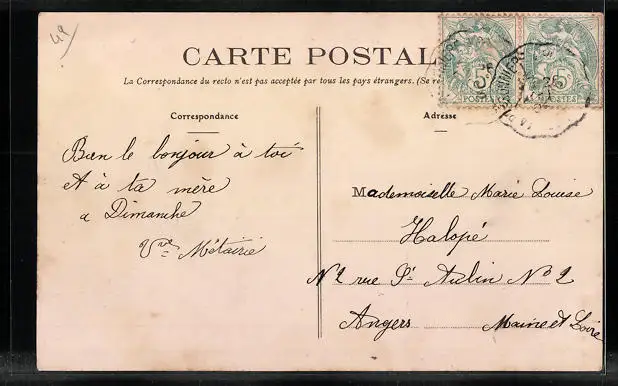 49
CARTE POSTALE
La Correspondance du recto n'est pas acceptée par tous les pays étrangers. (Se
Correspondance
Adresse
Bien le bonjour à toi
et à ta mère
a Dimanche
Vve Métairie
Mademoiselle Marie Louise
Halopé
No 2 rue St Aubin No 2
Angers Maine et Loire
5c 5c
POSTES POSTES